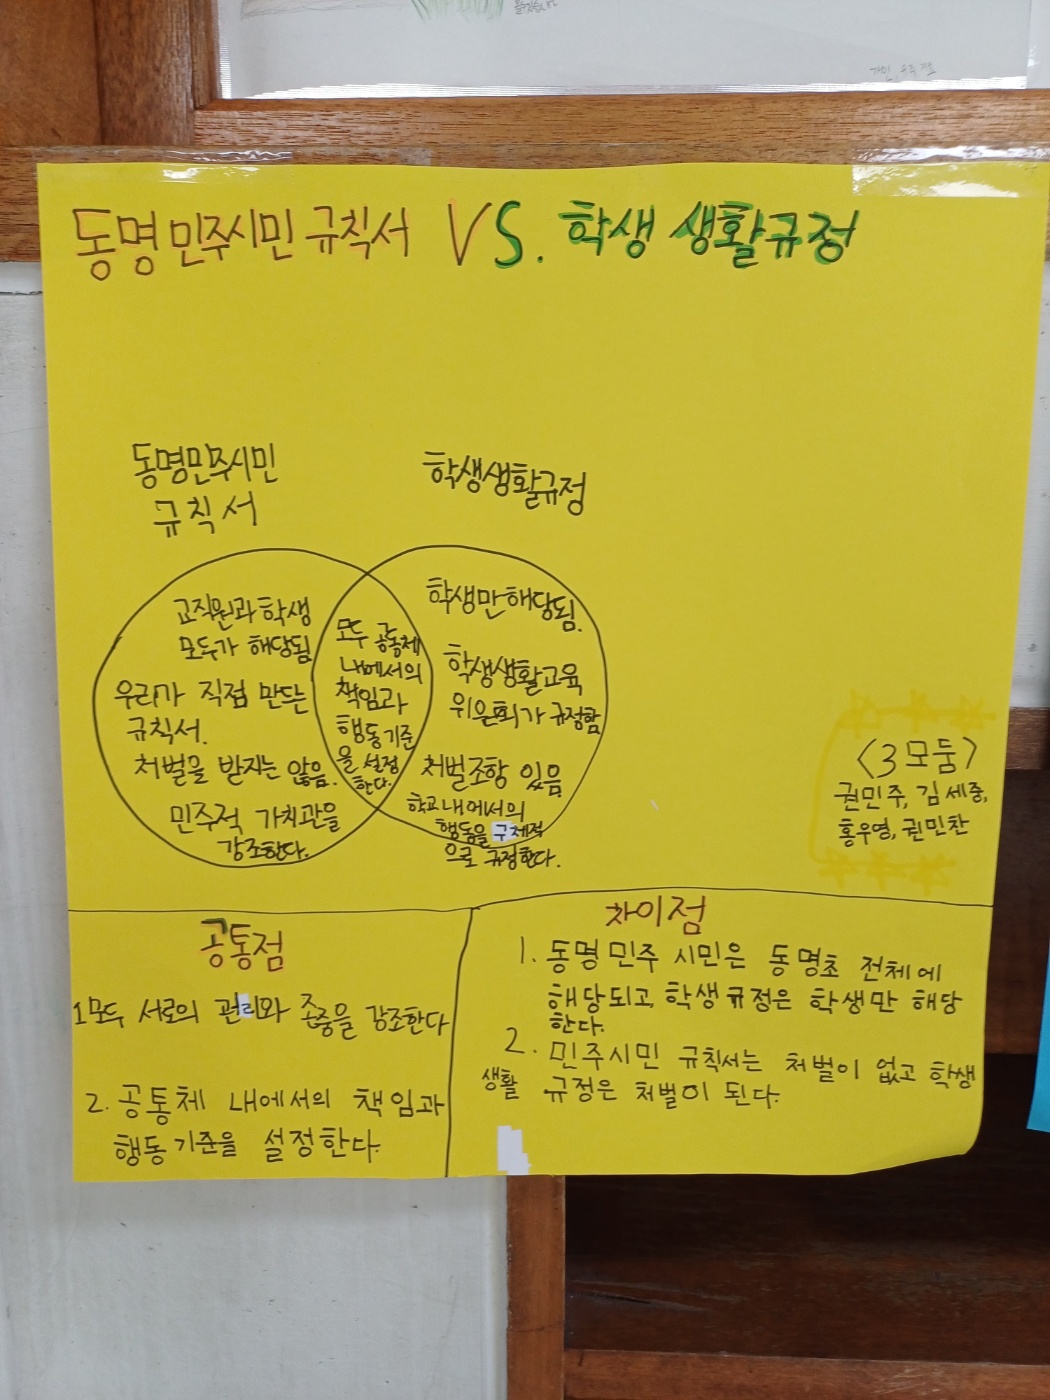 동명 민주시민 규칙서 VS. 학생 생활규정
동명민주시민
규칙서
학생생활규정
교직원과 학생
모두가 해당됨
우리가 직접 만드는
규칙서.
처벌을 받지는 않음.
민주적 가치관을
강조한다.
모두 공동체
내에서의
책임과
행동기준
을 설정
한다.
학생만해당됨.
학생생활교육
위원회가 규정함
처벌조항 있음
학교내에서의
행동을 구체적
으로 규정한다.
<3모둠>
권민주, 김세중,
홍우영, 권민찬
공통점
1모두 서로의 권리와 존중을 강조한다
2. 공통체 내에서의 책임과
행동기준을 설정한다.
차이점
1. 동명 민주 시민은 동명초 전체에
해당되고, 학생규정은 학생만 해당
한다.
2. 민주시민 규칙서는 처벌이 없고 학생
생활 규정은 처벌이 된다.